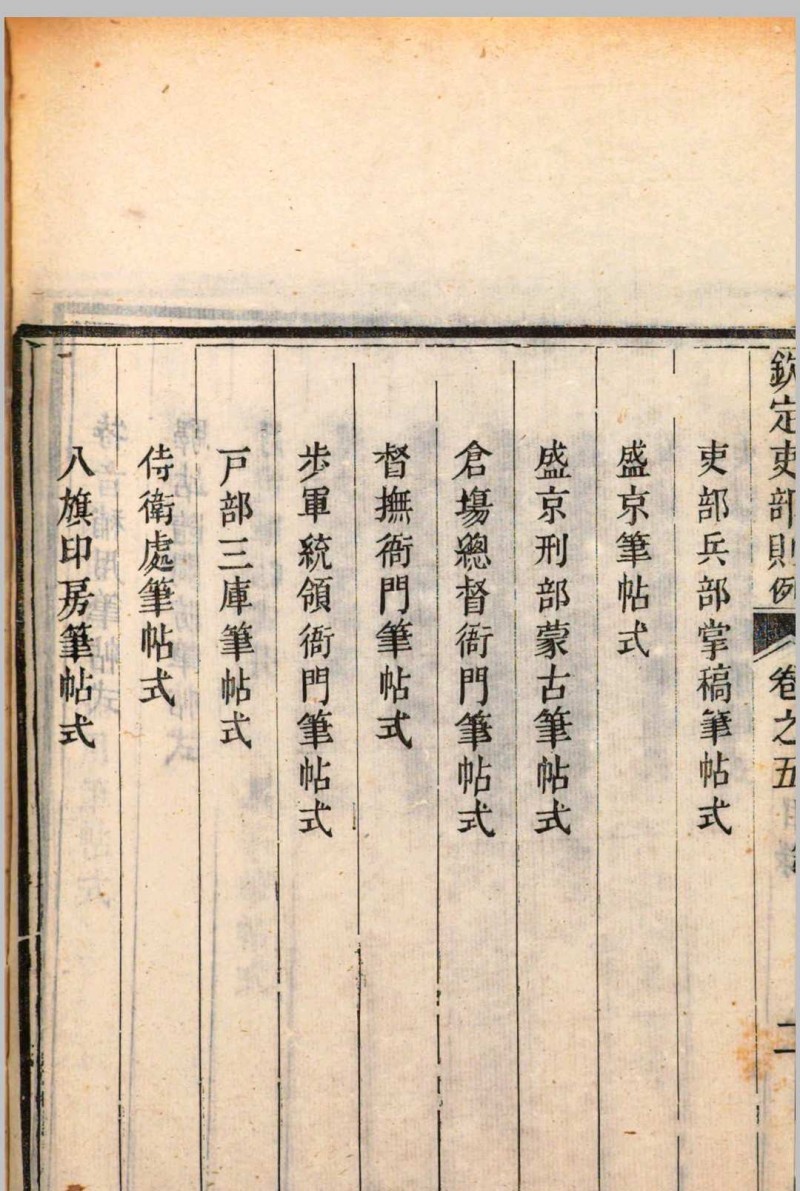 欽定吏部則例
卷之五
二
吏部兵部掌稿筆帖式
盛京筆帖式
盛京刑部蒙古筆帖式
倉場總督衙門筆帖式
督撫衙門筆帖式
步軍統領衙門筆帖式
戸部三庫筆帖式
侍衛處筆帖式
八旗印房筆帖式